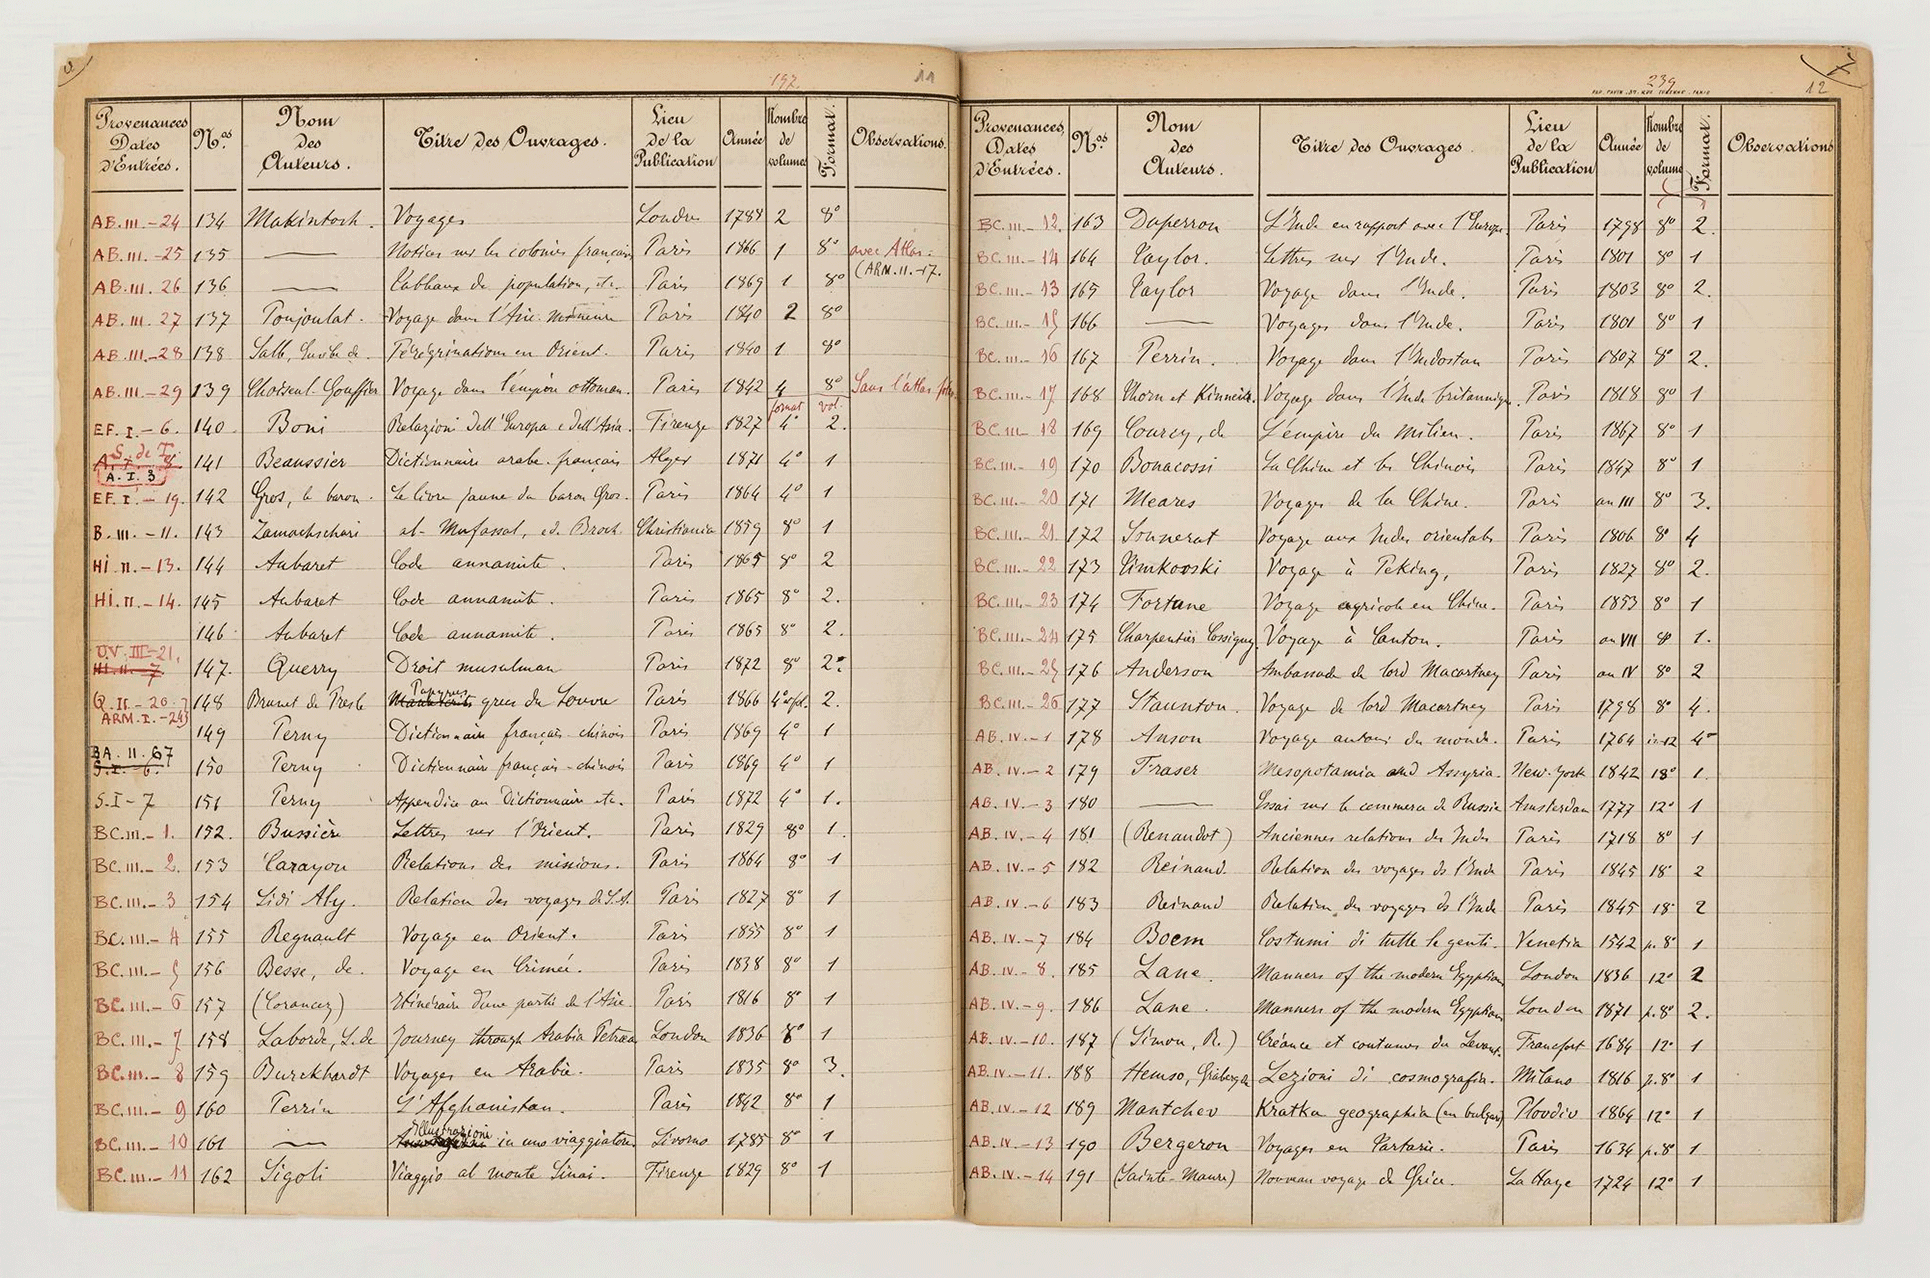 197.
11
Provenances Dates d'Entrées. | Nos. | Nom des Auteurs. | Titre des Ouvrages. | Lieu de la Publication | Année | Nombre de volumes | Format. | Observations.
AB. III. - 24 | 134 | Makintosh. | Voyages | Londres | 1788 | 2 | 8°
AB. III. - 25 | 135 | — | Notices sur les colonies françaises | Paris | 1866 | 1 | 8° | avec Atlas.
AB. III. 26 | 136 | — | Tableaux de population, etc. | Paris | 1869 | 1 | 8° | (ARM. II. - 17.
AB. III. 27 | 137 | Poujoulat. | Voyage dans l'Asie Mineure | Paris | 1840 | 2 | 8°
AB. III. - 28 | 138 | Salle, Eusèbe de. | Pérégrinations en Orient. | Paris | 1840 | 1 | 8°
AB. III. - 29 | 139 | Choiseul-Gouffier | Voyage dans l'empire ottoman. | Paris | 1842 | 4 | 8° | Sans l'atlas
format | vol.
EF. I. - 6. | 140 | Boni | Relazioni dell'Europa e dell'Asia. | Firenze | 1827 | 4° | 2.
S. de T.
A. I. 3 | 141 | Beaussier | Dictionnaire arabe-français | Alger | 1871 | 4° | 1
EF. I. - 19. | 142 | Gros, le baron. | Le livre jaune du baron Gros. | Paris | 1864 | 4° | 1
B. III. - 11. | 143 | Zamachschari | al-Mufassal, ed. Broch. | Christiania | 1859 | 8° | 1
HI. II. - 13. | 144 | Aubaret | Code annamite. | Paris | 1865 | 8° | 2
HI. II. - 14. | 145 | Aubaret | Code annamite. | Paris | 1865 | 8° | 2.
146 | Aubaret | Code annamite. | Paris | 1865 | 8° | 2.
UV. III - 21.
HI. II. - 7 | 147. | Querry | Droit musulman | Paris | 1872 | 8° | 2.
Q. II. - 20 | 148 | Brunet de Presle | Papyrus grecs du Louvre | Paris | 1866 | 4° | 2.
ARM. I. - 243
149 | Perny | Dictionnaire français-chinois | Paris | 1869 | 4° | 1
BA. II. 67
S. I. - 6. | 150 | Perny | Dictionnaire français-chinois | Paris | 1869 | 4° | 1
S. I - 7 | 151 | Perny | Appendice au Dictionnaire etc. | Paris | 1872 | 4° | 1.
BC. III. - 1. | 152. | Bussière | Lettres sur l'Orient. | Paris | 1829 | 8° | 1.
BC. III. - 2. | 153 | Carayon | Relations des missions. | Paris | 1864 | 8° | 1
BC. III. - 3 | 154 | Sidi Aly. | Relation des voyages de S. A. | Paris | 1827 | 8° | 1
BC. III. - 4 | 155 | Regnault | Voyage en Orient. | Paris | 1855 | 8° | 1
BC. III. - 5 | 156 | Besse, de. | Voyage en Crimée. | Paris | 1838 | 8° | 1
BC. III. - 6 | 157 | (Corancez) | Itinéraire d'une partie de l'Asie. | Paris | 1816 | 8° | 1
BC. III. - 7 | 158 | Laborde, L. de | Journey through Arabia Petraea | London | 1836 | 8° | 1
BC. III. - 8 | 159 | Burckhardt | Voyages en Arabie. | Paris | 1835 | 8° | 3.
BC. III. - 9 | 160 | Perrin | L'Afghanistan. | Paris | 1842 | 8° | 1
BC. III. - 10 | 161 | — | Illustrazioni in uno viaggiatore | Livorno | 1785 | 8° | 1
BC. III. - 11 | 162 | Sigoli | Viaggio al monte Sinai. | Firenze | 1829 | 8° | 1
7
239
12
Provenances, Dates d'Entrées. | Nos. | Nom des Auteurs. | Titre des Ouvrages. | Lieu de la Publication | Année | Nombre de volumes | Format. | Observations
BC. III. - 12. | 163 | Duperron | L'Inde en rapport avec l'Europe. | Paris | 1798 | 8° | 2.
BC. III. - 14 | 164 | Taylor. | Lettres sur l'Inde. | Paris | 1801 | 8° | 1
BC. III. - 13 | 165 | Taylor | Voyage dans l'Inde. | Paris | 1803 | 8° | 2.
BC. III. - 15 | 166 | — | Voyages dans l'Inde. | Paris | 1801 | 8° | 1
BC. III. - 16 | 167 | Perrin. | Voyage dans l'Indostan | Paris | 1807 | 8° | 2.
BC. III. - 17 | 168 | Thorn et Kinneir. | Voyage dans l'Inde britannique. | Paris | 1818 | 8° | 1
BC. III - 18 | 169 | Courcy, de | L'empire du milieu. | Paris | 1867 | 8° | 1
BC. III. - 19 | 170 | Bonacossi | La Chine et les Chinois | Paris | 1847 | 8° | 1
BC. III. - 20 | 171 | Meares | Voyages de la Chine. | Paris | an III | 8° | 3.
BC. III. - 21. | 172 | Sonnerat | Voyage aux Indes orientales | Paris | 1806 | 8° | 4
BC. III. - 22 | 173 | Timkovski | Voyage à Peking, | Paris | 1827 | 8° | 2.
BC. III. - 23 | 174 | Fortune | Voyage agricole en Chine. | Paris | 1853 | 8° | 1
BC. III. - 24 | 175 | Charpentier Cossigny. | Voyage à Canton. | Paris | an VII | 8° | 1.
BC. III. - 25 | 176 | Anderson | Ambassade de lord Macartney | Paris | an IV | 8° | 2
BC. III. - 26 | 177 | Staunton. | Voyage de lord Macartney | Paris | 1798 | 8° | 4.
AB. IV. - 1 | 178 | Anson | Voyage autour du monde. | Paris | 1764 | in-12 | 4
AB. IV. - 2 | 179 | Fraser | Mesopotamia and Assyria. | New-York | 1842 | 18° | 1.
AB. IV. - 3 | 180 | — | Essai sur le commerce de Russie | Amsterdam | 1777 | 12° | 1
AB. IV. - 4 | 181 | (Renaudot) | Anciennes relations des Indes | Paris | 1718 | 8° | 1
AB. IV. - 5 | 182 | Reinaud. | Relation des voyages ds l'Inde | Paris | 1845 | 18° | 2
AB. IV. - 6 | 183 | Reinaud | Relation des voyages ds l'Inde | Paris | 1845 | 18° | 2
AB. IV. - 7 | 184 | Boem | Costumi di tutte le genti. | Venetia | 1542 | p. 8° | 1
AB. IV. - 8. | 185 | Lane. | Manners of the modern Egyptians | London | 1836 | 12° | 2
AB. IV. - 9. | 186 | Lane. | Manners of the modern Egyptians | London | 1871 | p. 8° | 2.
AB. IV. - 10. | 187 | (Simon, R.) | Créance et coutumes du Levant. | Francfort | 1684 | 12° | 1
AB. IV. - 11. | 188 | Hemso, Gråberg de | Lezioni di cosmografia. | Milano | 1816 | p. 8° | 1
AB. IV. - 12 | 189 | Mantchev | Kratka geographia (en bulgare) | Plovdiv | 1864 | 12° | 1
AB. IV. - 13 | 190 | Bergeron | Voyages en Tartarie. | Paris | 1634 | p. 8° | 1
AB. IV. - 14 | 191 | (Sainte-Maure) | Nouveau voyage de Grèce. | La Haye | 1724 | 12° | 1